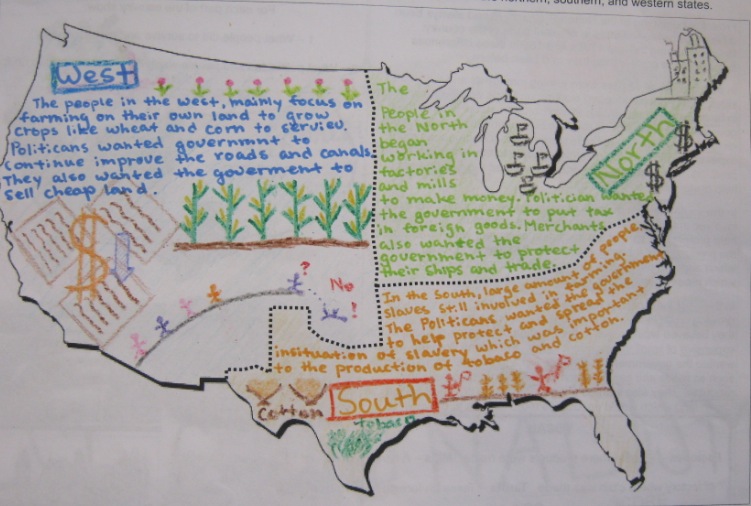 the northern, southern, and western states.
West
The people in the west, mainly focus on
farming on their own land to grow
crops like wheat and corn to servieu.
Politicans wanted governmnt to
continue improve the roads and canals.
They also wanted the goverment to
sell cheap land.
$
?
No
!
The
People in
the North
began
working in
factories
and mills
to make money. Politician wanted
the government to put tax
in foreign goods. Merchants
also wanted the
government to protect
their ships and trade.
North
$
$
In the South, large amounts of people,
slaves still involved in farming.
The Politicans wanted the government
to help protect and spread the
insituation of slavery which was important
to the production of tobaco and cotton.
Cotton
South
tobaco